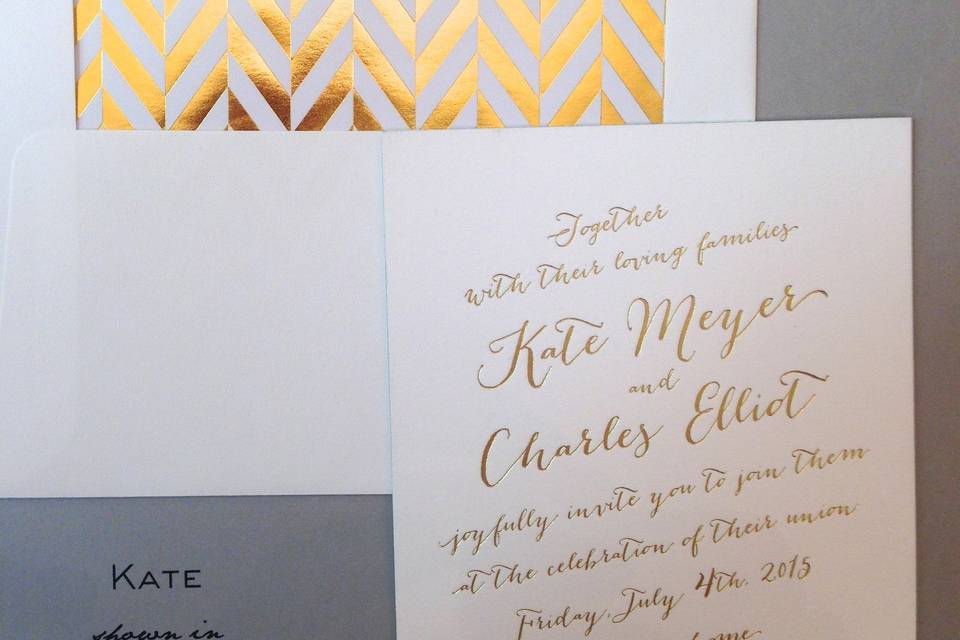 Together
with their loving families
Kate Meyer
and
Charles Elliot
joyfully invite you to join them
at the celebration of their union
Friday, July 4th, 2015
home
KATE
shown in